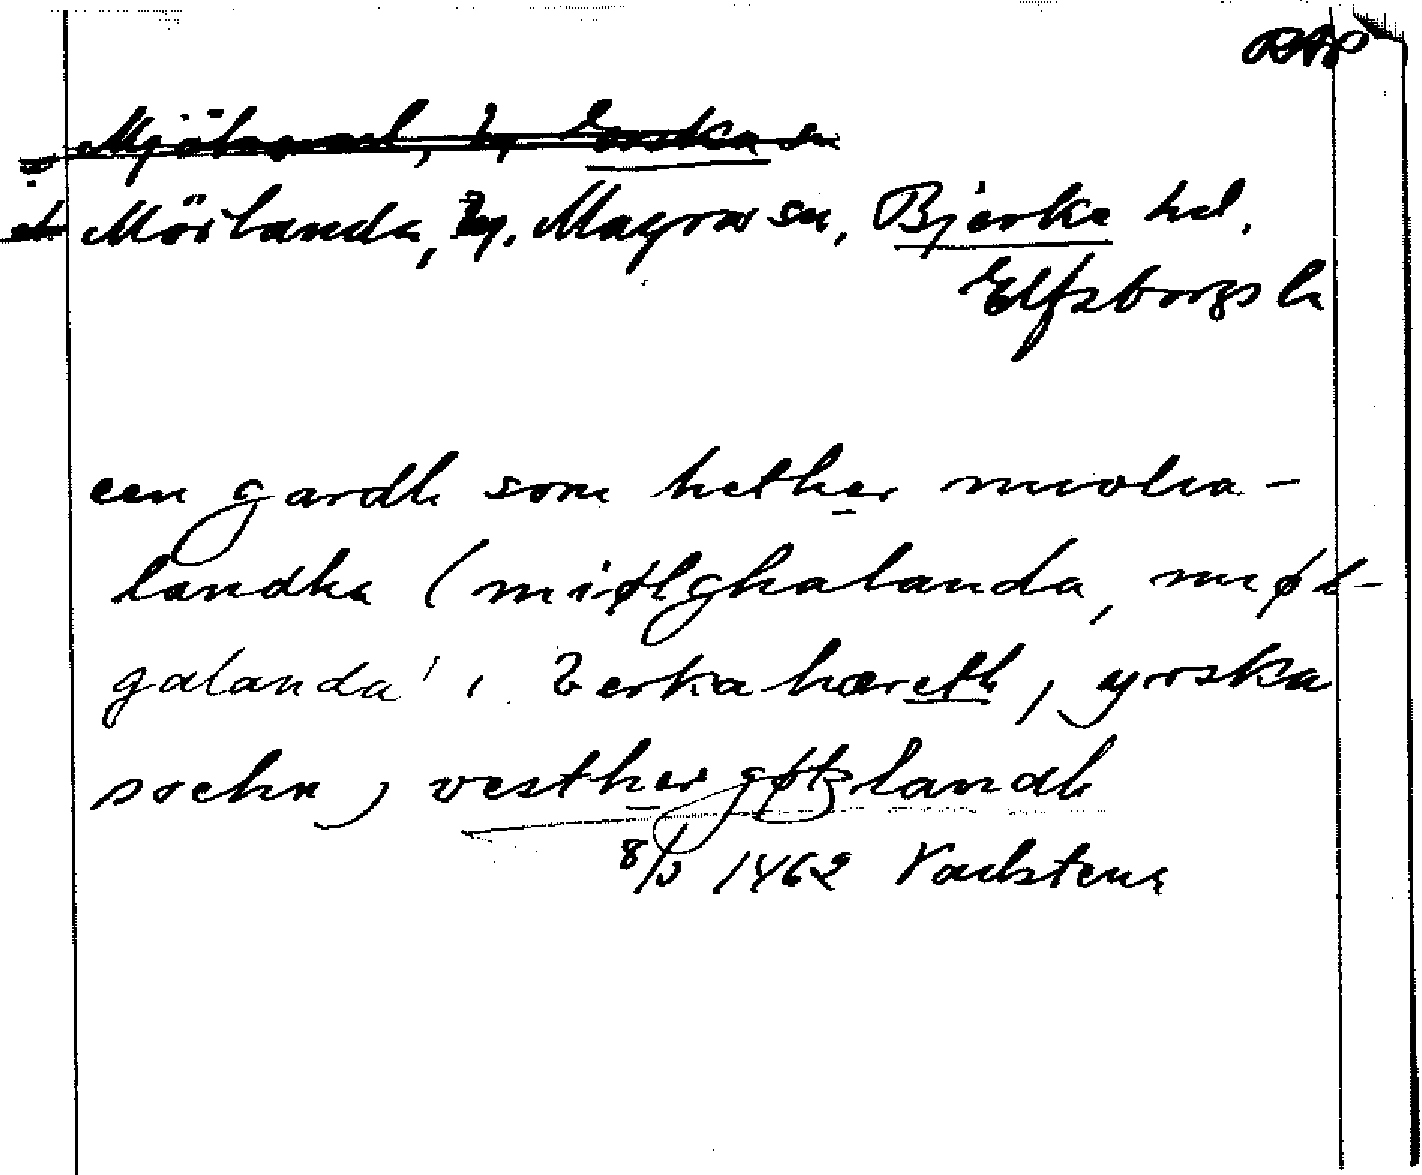 RAP
Mjöl, by, Eorska sn
Mörlanda, by, Magra sn, Bjerke hd.
Elfsborgs l.
een gardh som hether miolia-
landha (miølghalanda, miøl-
galanda) i berka hæreth, yrska
sochn, vesthergøtzlandh
8/3 1462 Vadstena